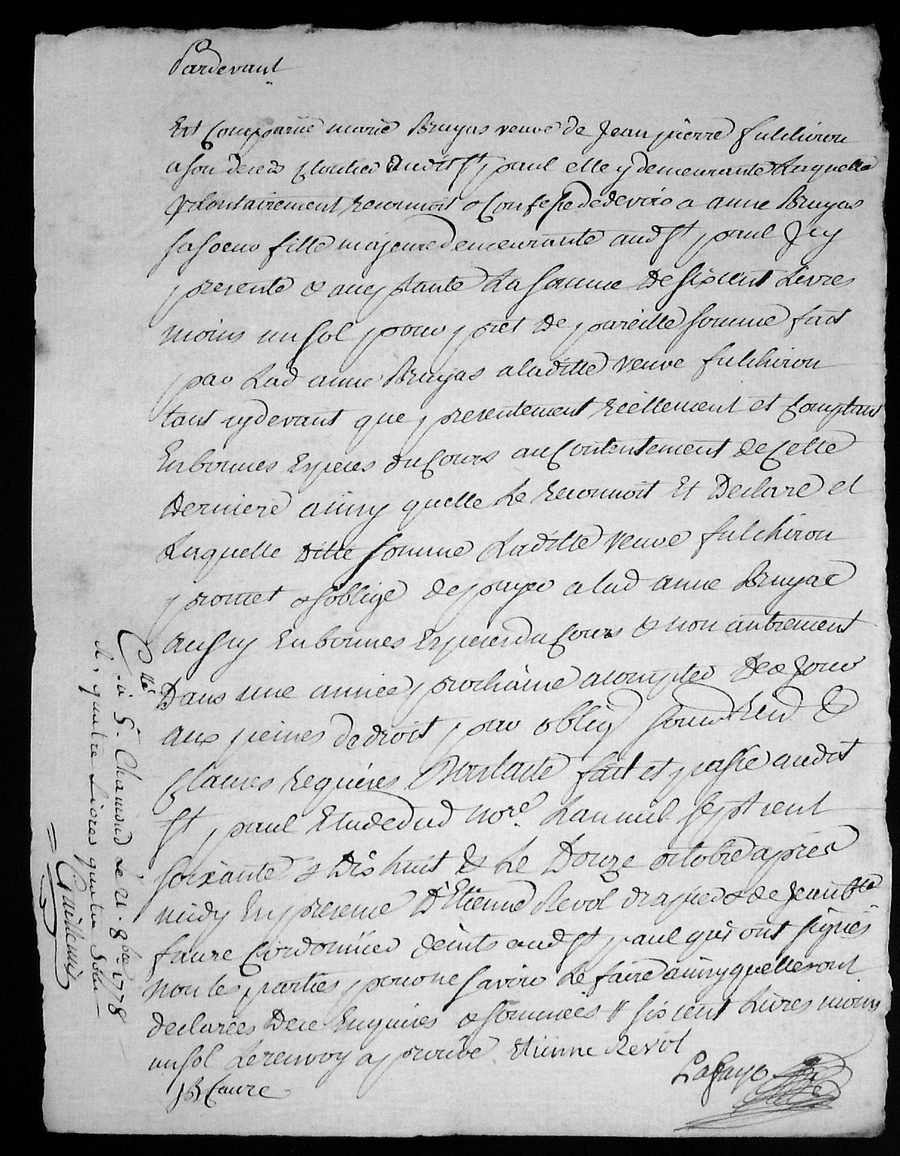 Pardevant
Est Comparüe marie Bruyas veuve de Jean pierre fulchiron
a son deceds Cloutier dudit St paul elle y demeurante Laquelle
volontairement reconnoit & Confesse de devoir a anne Bruyas
sa soeur fille majeure demeurante aud St paul Icy
presente & acceptante La somme de six cent Livres
moins un sol pour pret de pareille somme fait
par Lad anne Bruyas a laditte veuve fulchiron
tant cydevant que presentement reèllement et Comptant
En bonnes Especes du Cours au Contentement de Cette
derniere ainsy quelle Le reconnoit Et Declare et
Laquelle ditte somme Laditte veuve fulchiron
promet & soblige de payer a lad anne Bruyas
aussy En bonnes Especes du Cours & non autrement
Dans une année prochaine a compter de ce jour
aux peines de droit par oblig soum Ren &
Clauses requises Dont acte fait et passé audit
St paul Etude dud nore. Lan mil sept cent
soixante & Dix huit & Le Douze octobre après
midy En presence D'Etienne Revol drapier & de Jean Bte
faure Cordonnier deints aud St paul qui ont signés
non les parties pour ne savoir Le faire ainsy quelle ont
declarées De ce Enquises & sommées # six cent Livres moins
un sol Le renvoy approuvé. Etienne Revol
JB faure
Lafayo
C.llé à St. Chamond Le 21. 8bre 1778
quatre Livres quatre sols